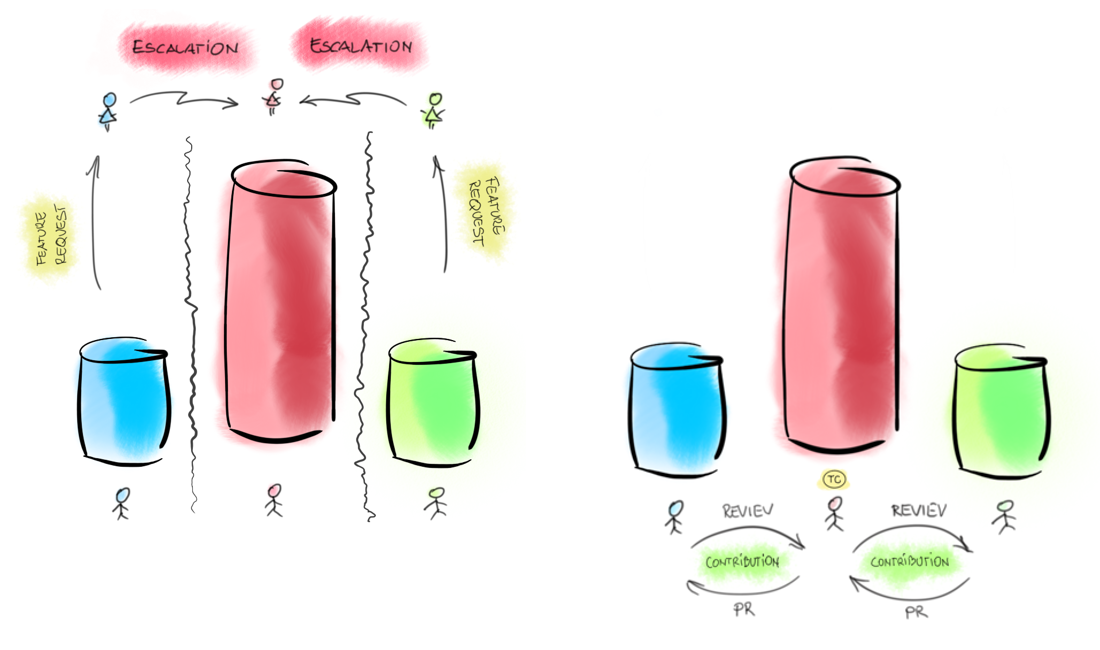 ESCALATION
ESCALATION
FEATURE
REQUEST
FEATURE
REQUEST
TC
REVIEV
REVIEV
CONTRIBUTION
CONTRIBUTION
PR
PR